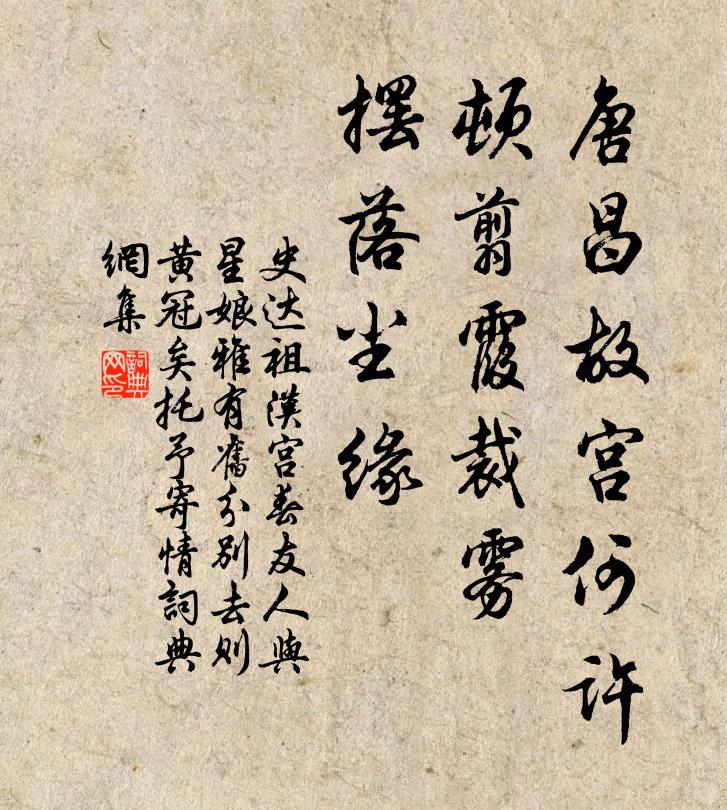 唐昌故宫何许
顿翦霞裁雾
摆落尘缘
史达祖漢宫春友人與
星娘雅有舊分别去则
黄冠矣托予寄情詞典
網集
詞典
网印